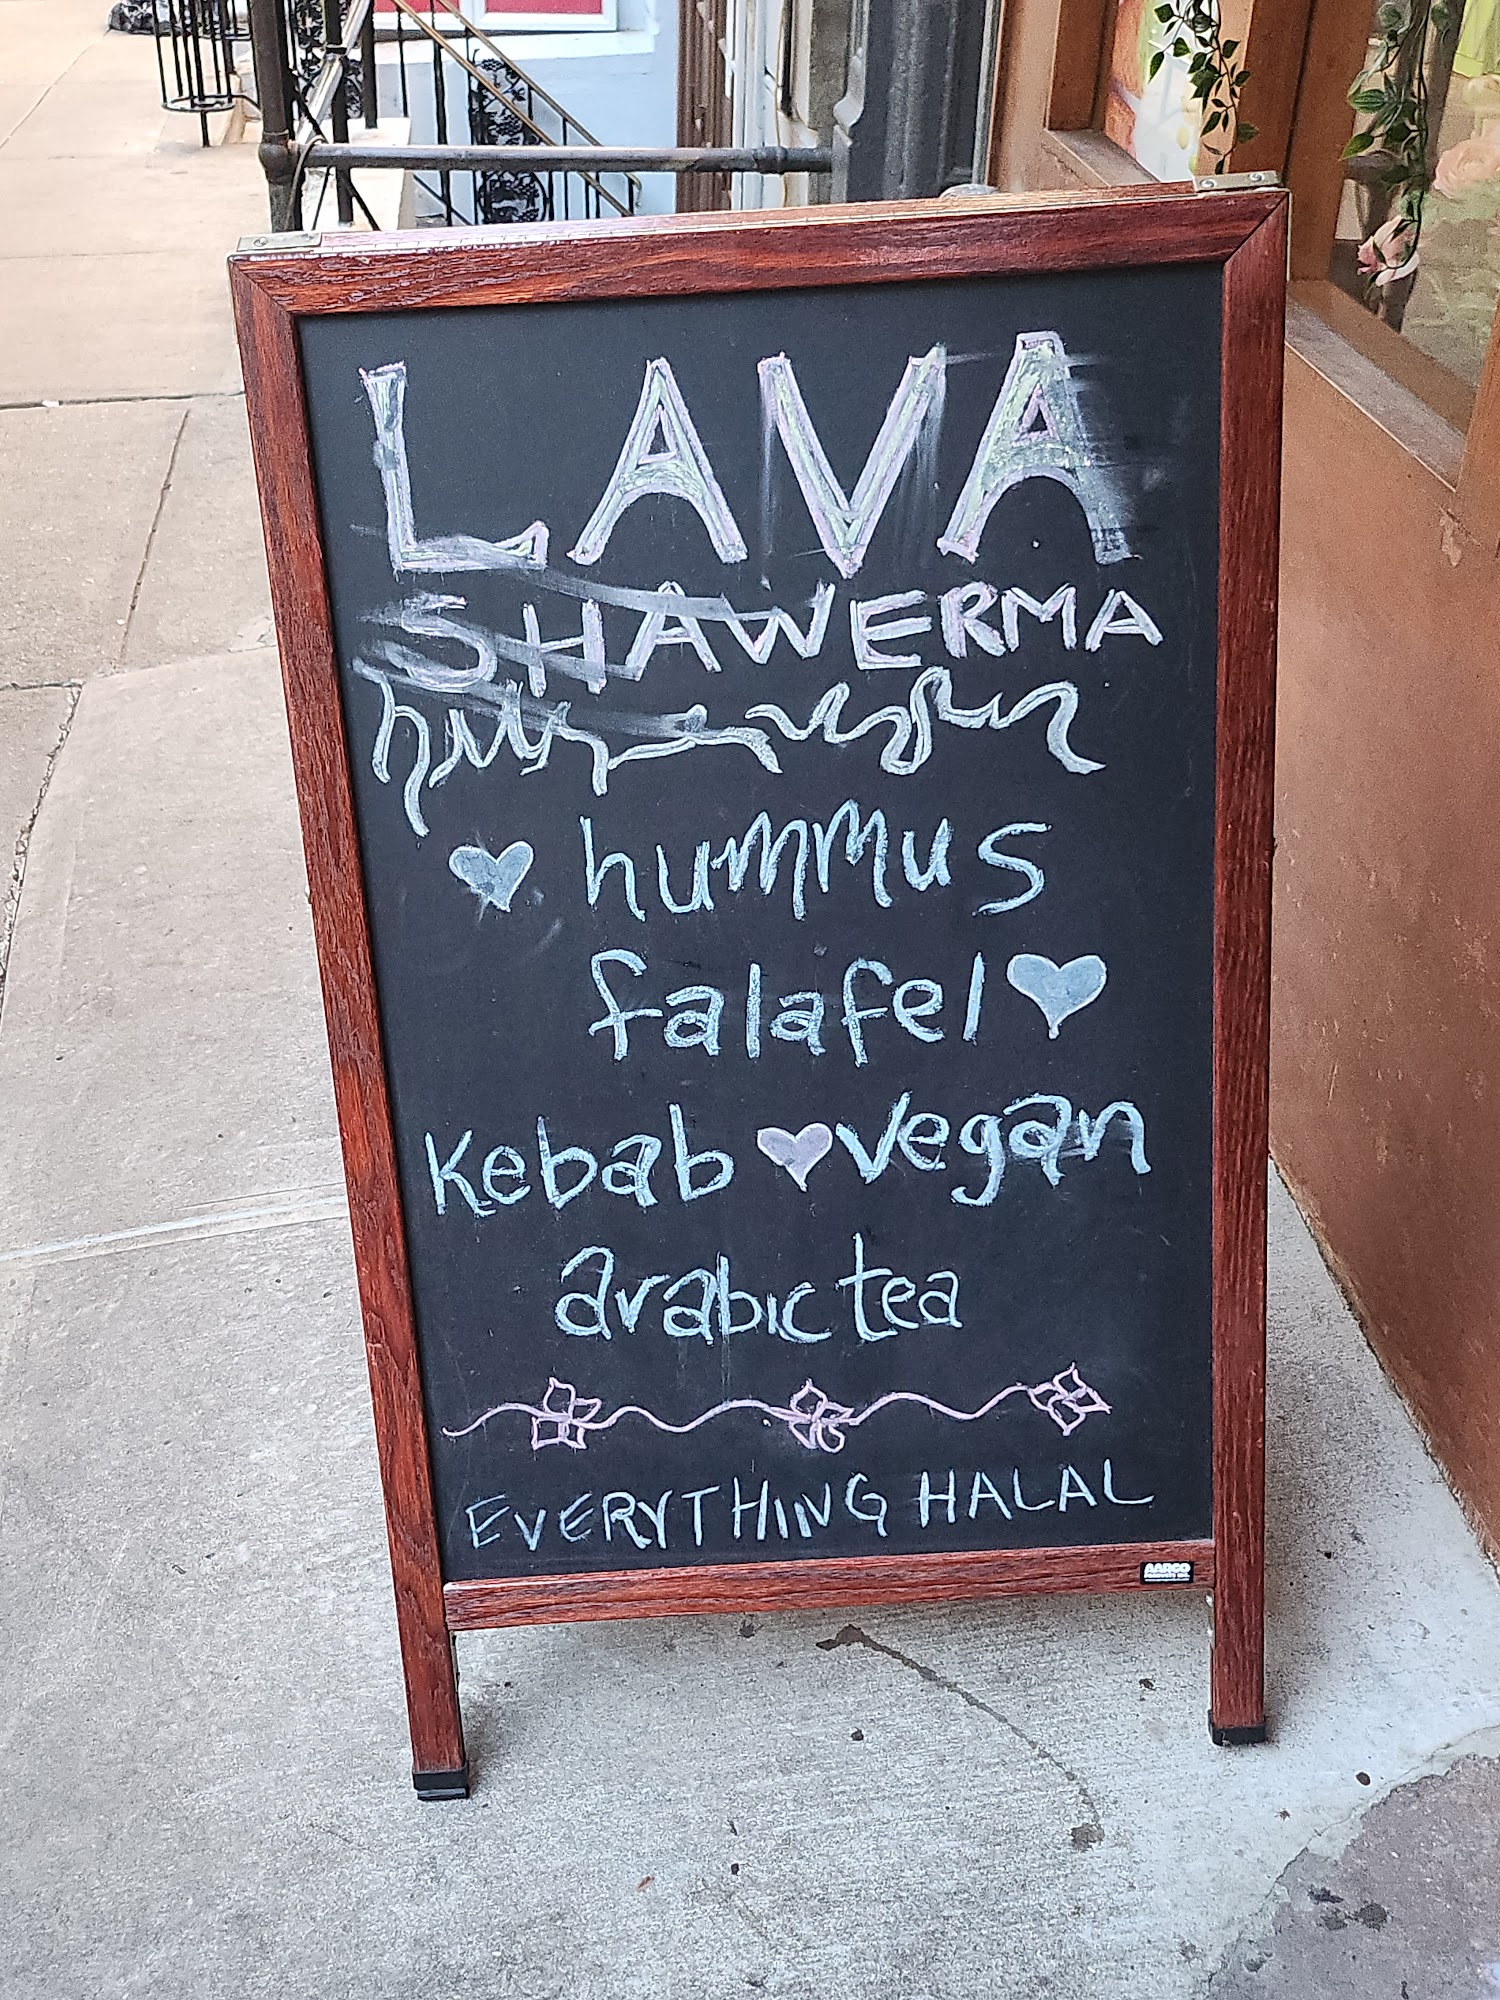 LAVA
SHAWERMA
hummus
falafel
kebab vegan
arabic tea
EVERYTHING HALAL
AARCO